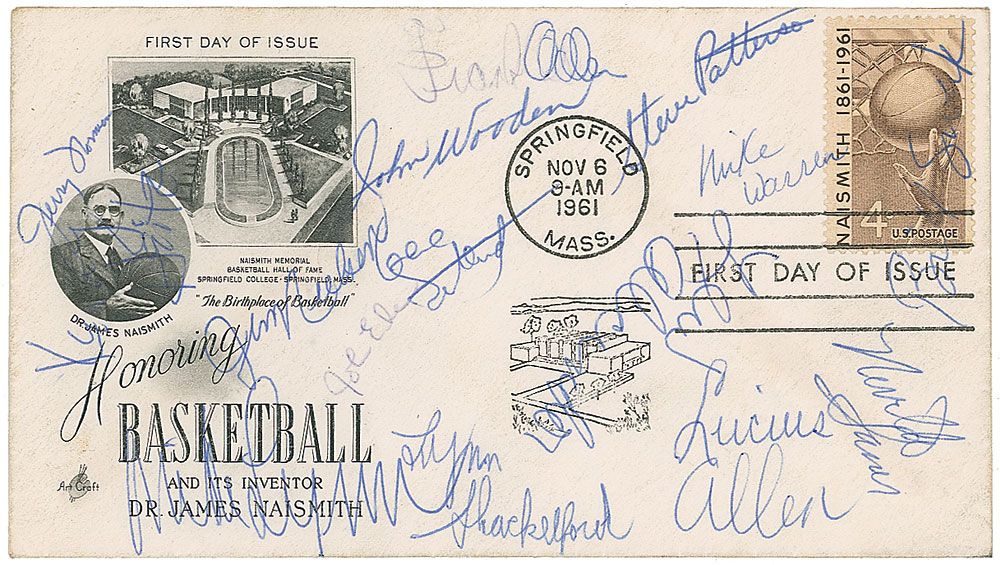 FIRST DAY OF ISSUE
Allen
Steve Patterson
John Wooden
Jerry Norman
SPRINGFIELD
NOV 6
9-AM
1961
MASS.
Mike
Warren
NAISMITH 1861-1961
4¢
U.S. POSTAGE
FIRST DAY OF ISSUE
NAISMITH MEMORIAL
BASKETBALL HALL OF FAME
SPRINGFIELD COLLEGE - SPRINGFIELD, MASS.
"The Birthplace of Basketball"
DR. JAMES NAISMITH
Honoring
BASKETBALL
AND ITS INVENTOR
DR. JAMES NAISMITH
Art Craft
Lynn
Shackelford
Lucius
Allen